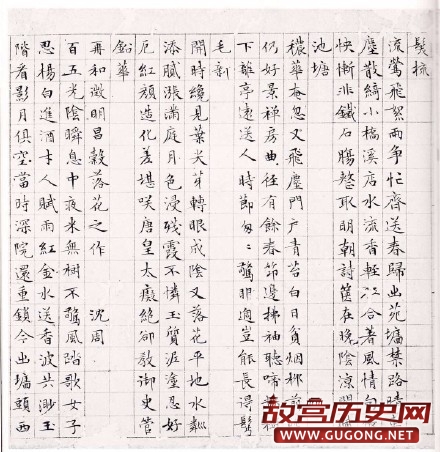 髮梳
流鶯飛絮兩争忙齊送春歸出苑墻禁路晴
塵散綺小橋溪店水流香輕合著風情白
怏慚非鐵石膓整取明朝詩在晚陰涼
池塘
穠華奄忽又飛塵門户青苔白日貧烟柳
仍好景禪房曲徑有餘春節邊拂袖聽啼
下離亭遠送人時節匆匆驚眼過豈能長得髩
毛新
開時纔見葉尖芽轉眼成陰又落花平地水瓢
添膩漲滿庭月色浸殘霞不憐玉質泥塗忍好
厄紅顏造化差堪咲唐皇太癡絶卻教御史管
鉛華
再和徵明昌穀落花之作 沈周
百五光陰瞬息中夜来無樹不驚風踏歌女子
思楊白進酒士人賦雨紅金水送香波共渺玉
階看影月俱空當時深院還重鎖今出墻頭西
故宫历史网
WWW.GUGONG.NET